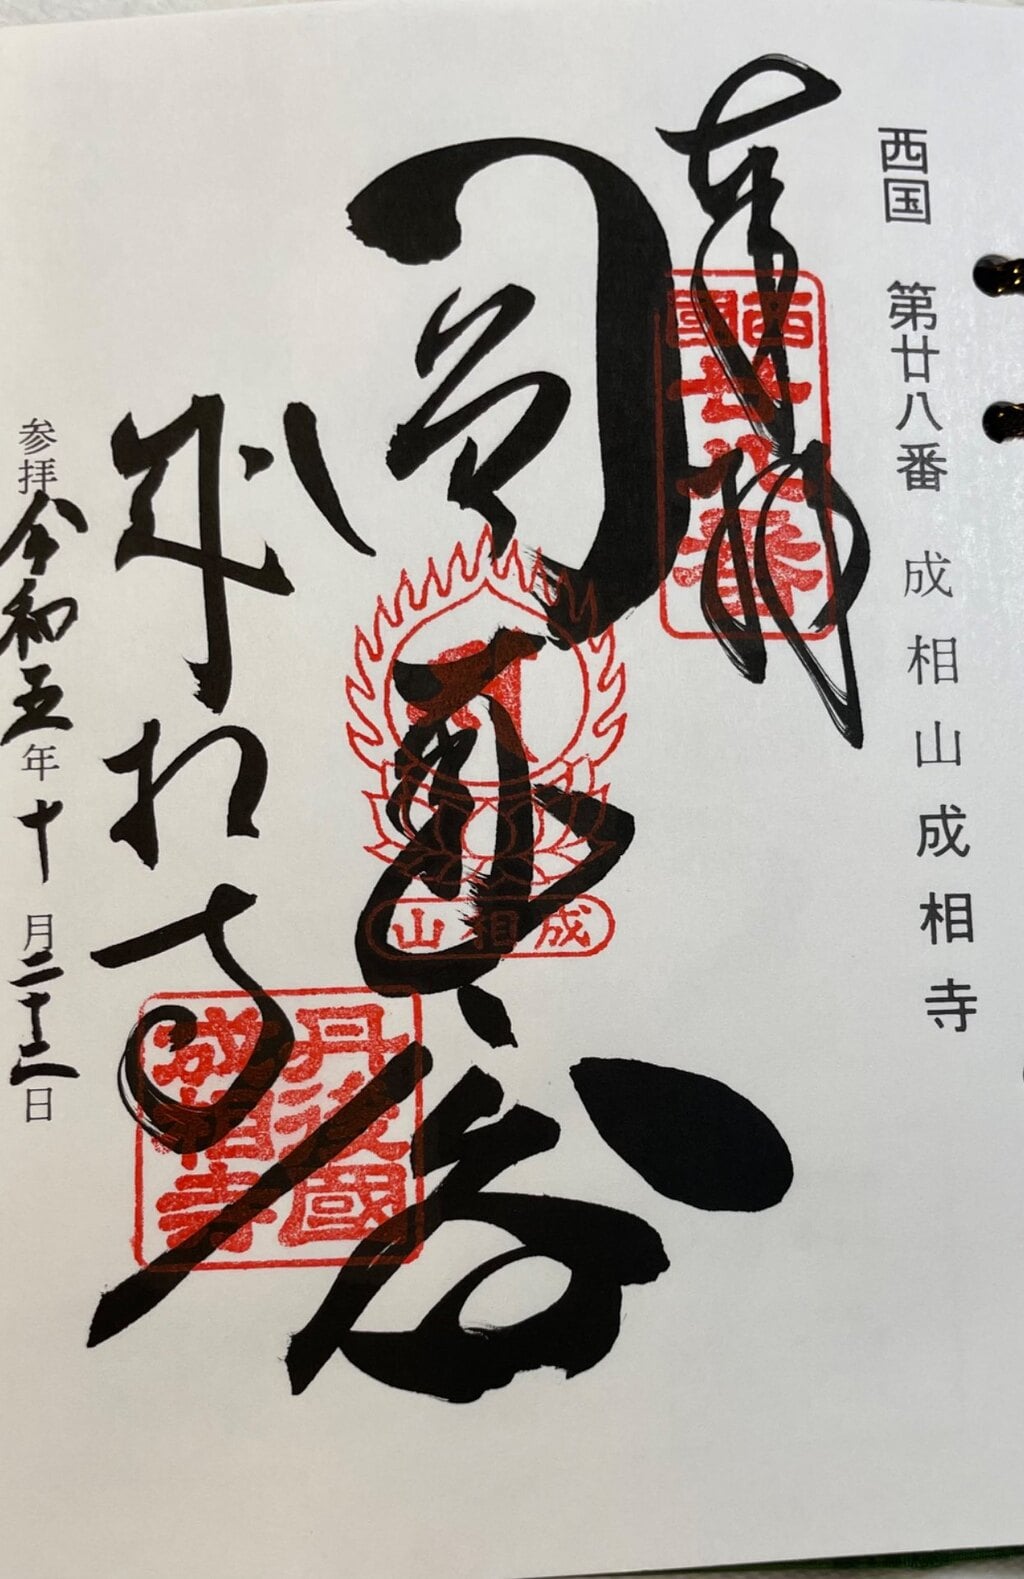 西国 第廿八番 成相山成相寺
奉拝
西國
廿八番
成相山
成相寺
丹後國
成相寺
参拝 令和五年十月二十二日